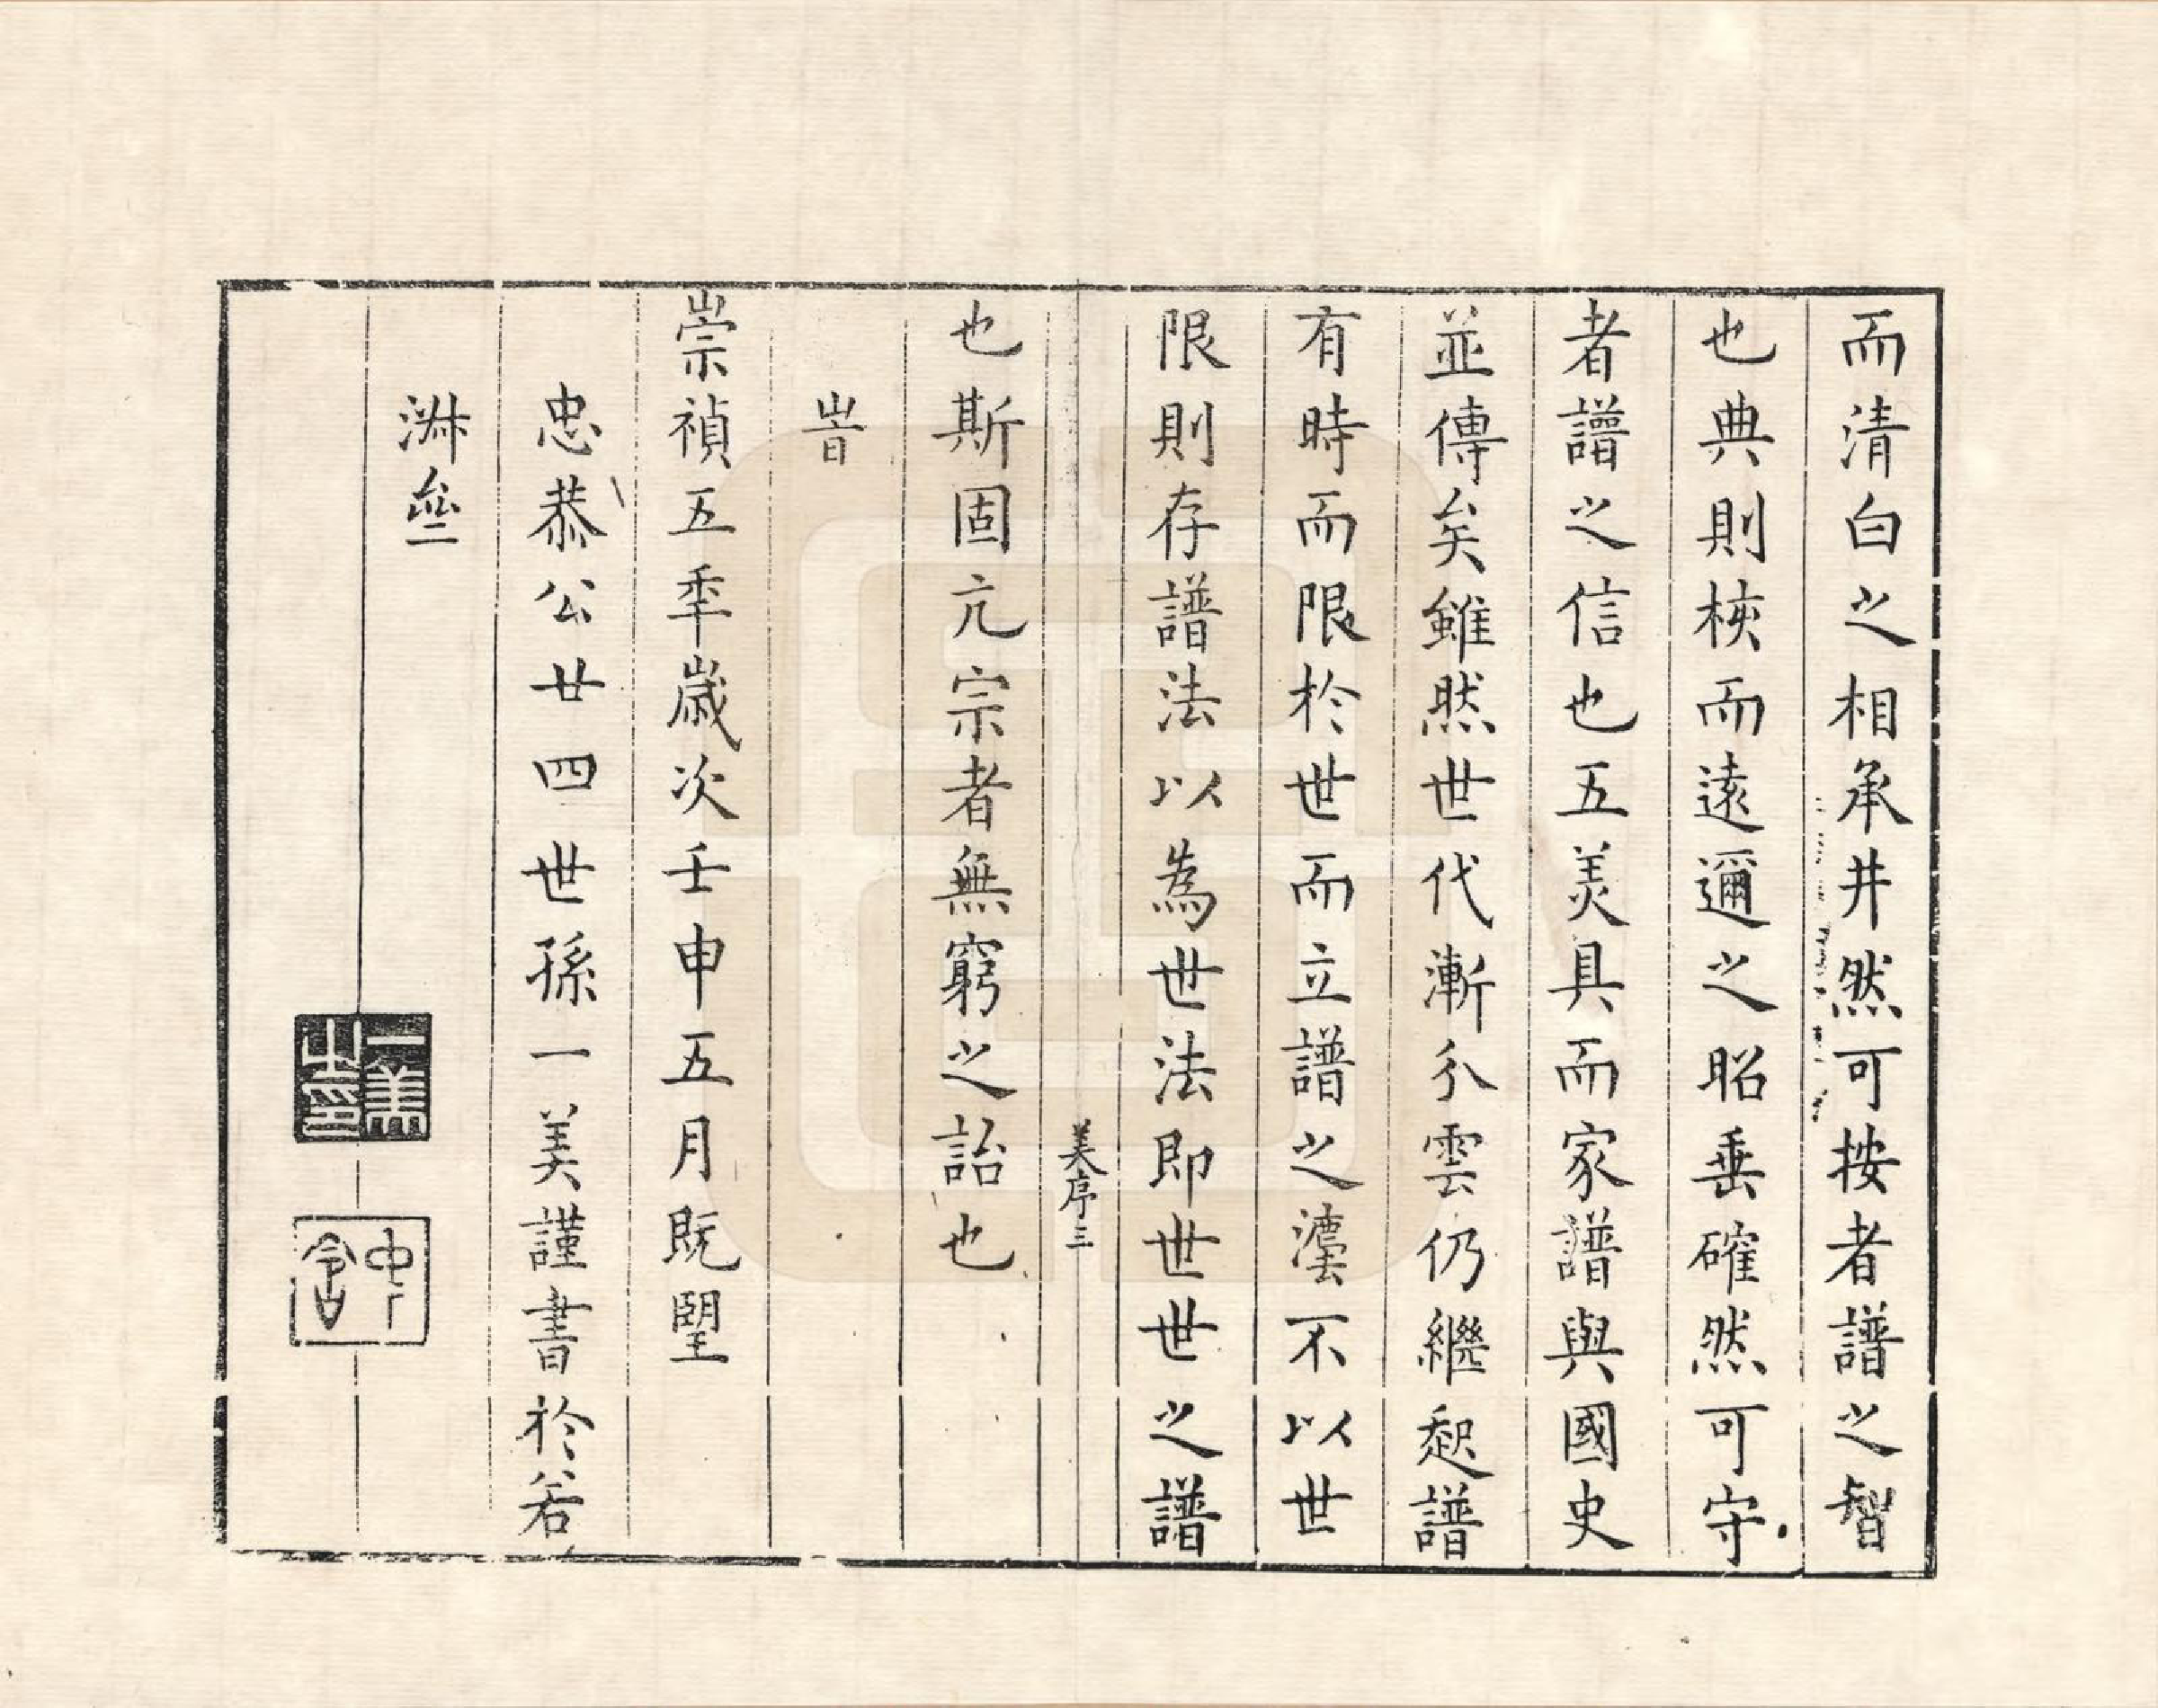 而清白之相承井然可按者譜之智
也典則核而遠邇之昭垂確然可守
者譜之信也五美具而家譜與國史
並傳矣雖然世代漸分雲仍繼起譜
有時而限於世而立譜之灋不以世
限則存譜法以為世世法即世世之譜
美序三
也斯固亢宗者無窮之詒也
旹
崇禎五季歲次壬申五月既朢
忠恭公廿四世孫一美謹書於若
一美之印